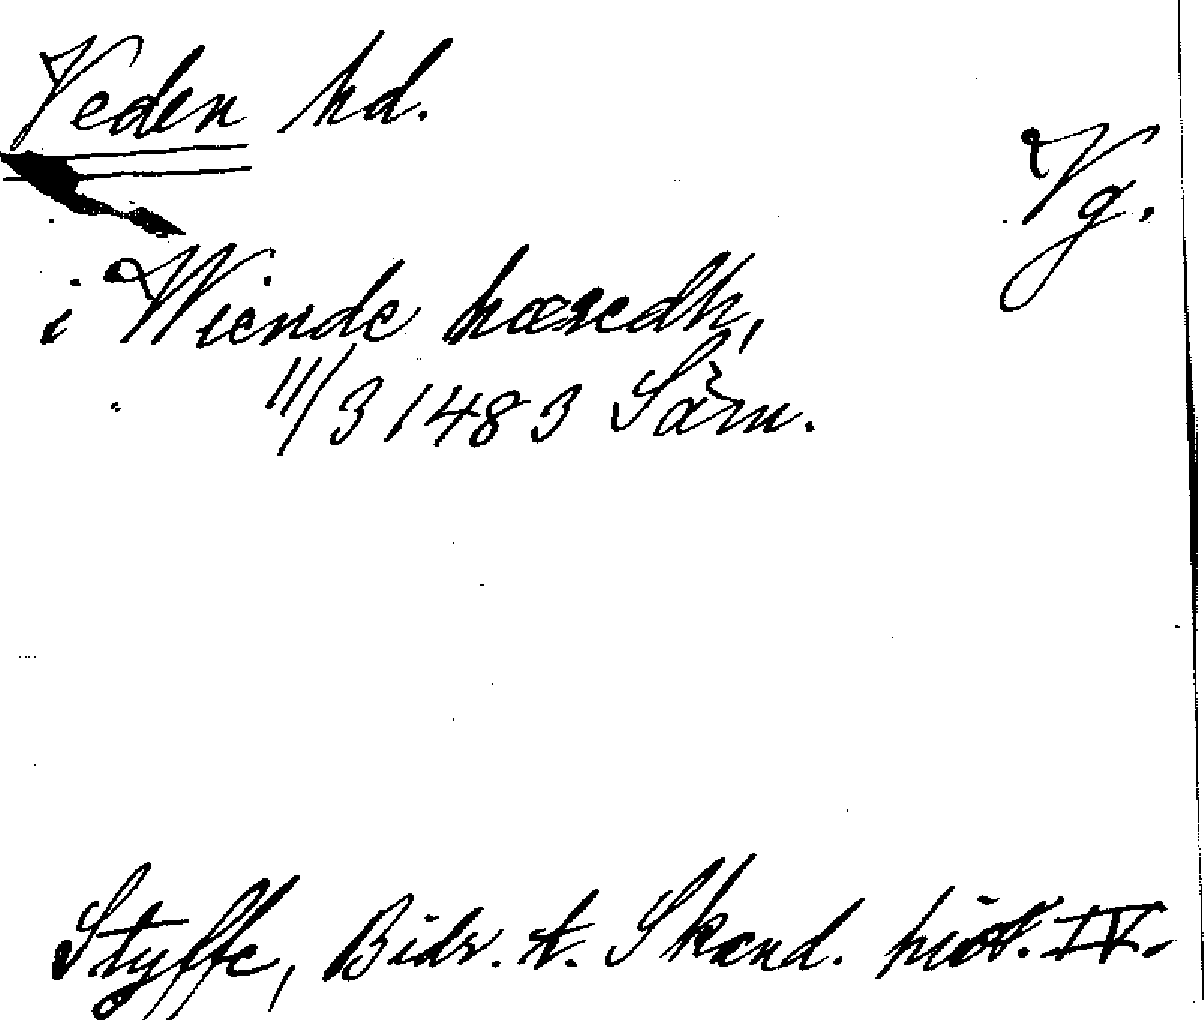 Veden hd.
Vg.
i Wiende hæredh,
11/3 1483 Särn.
Styffe, Bidr. t. Skand. hist. IV.